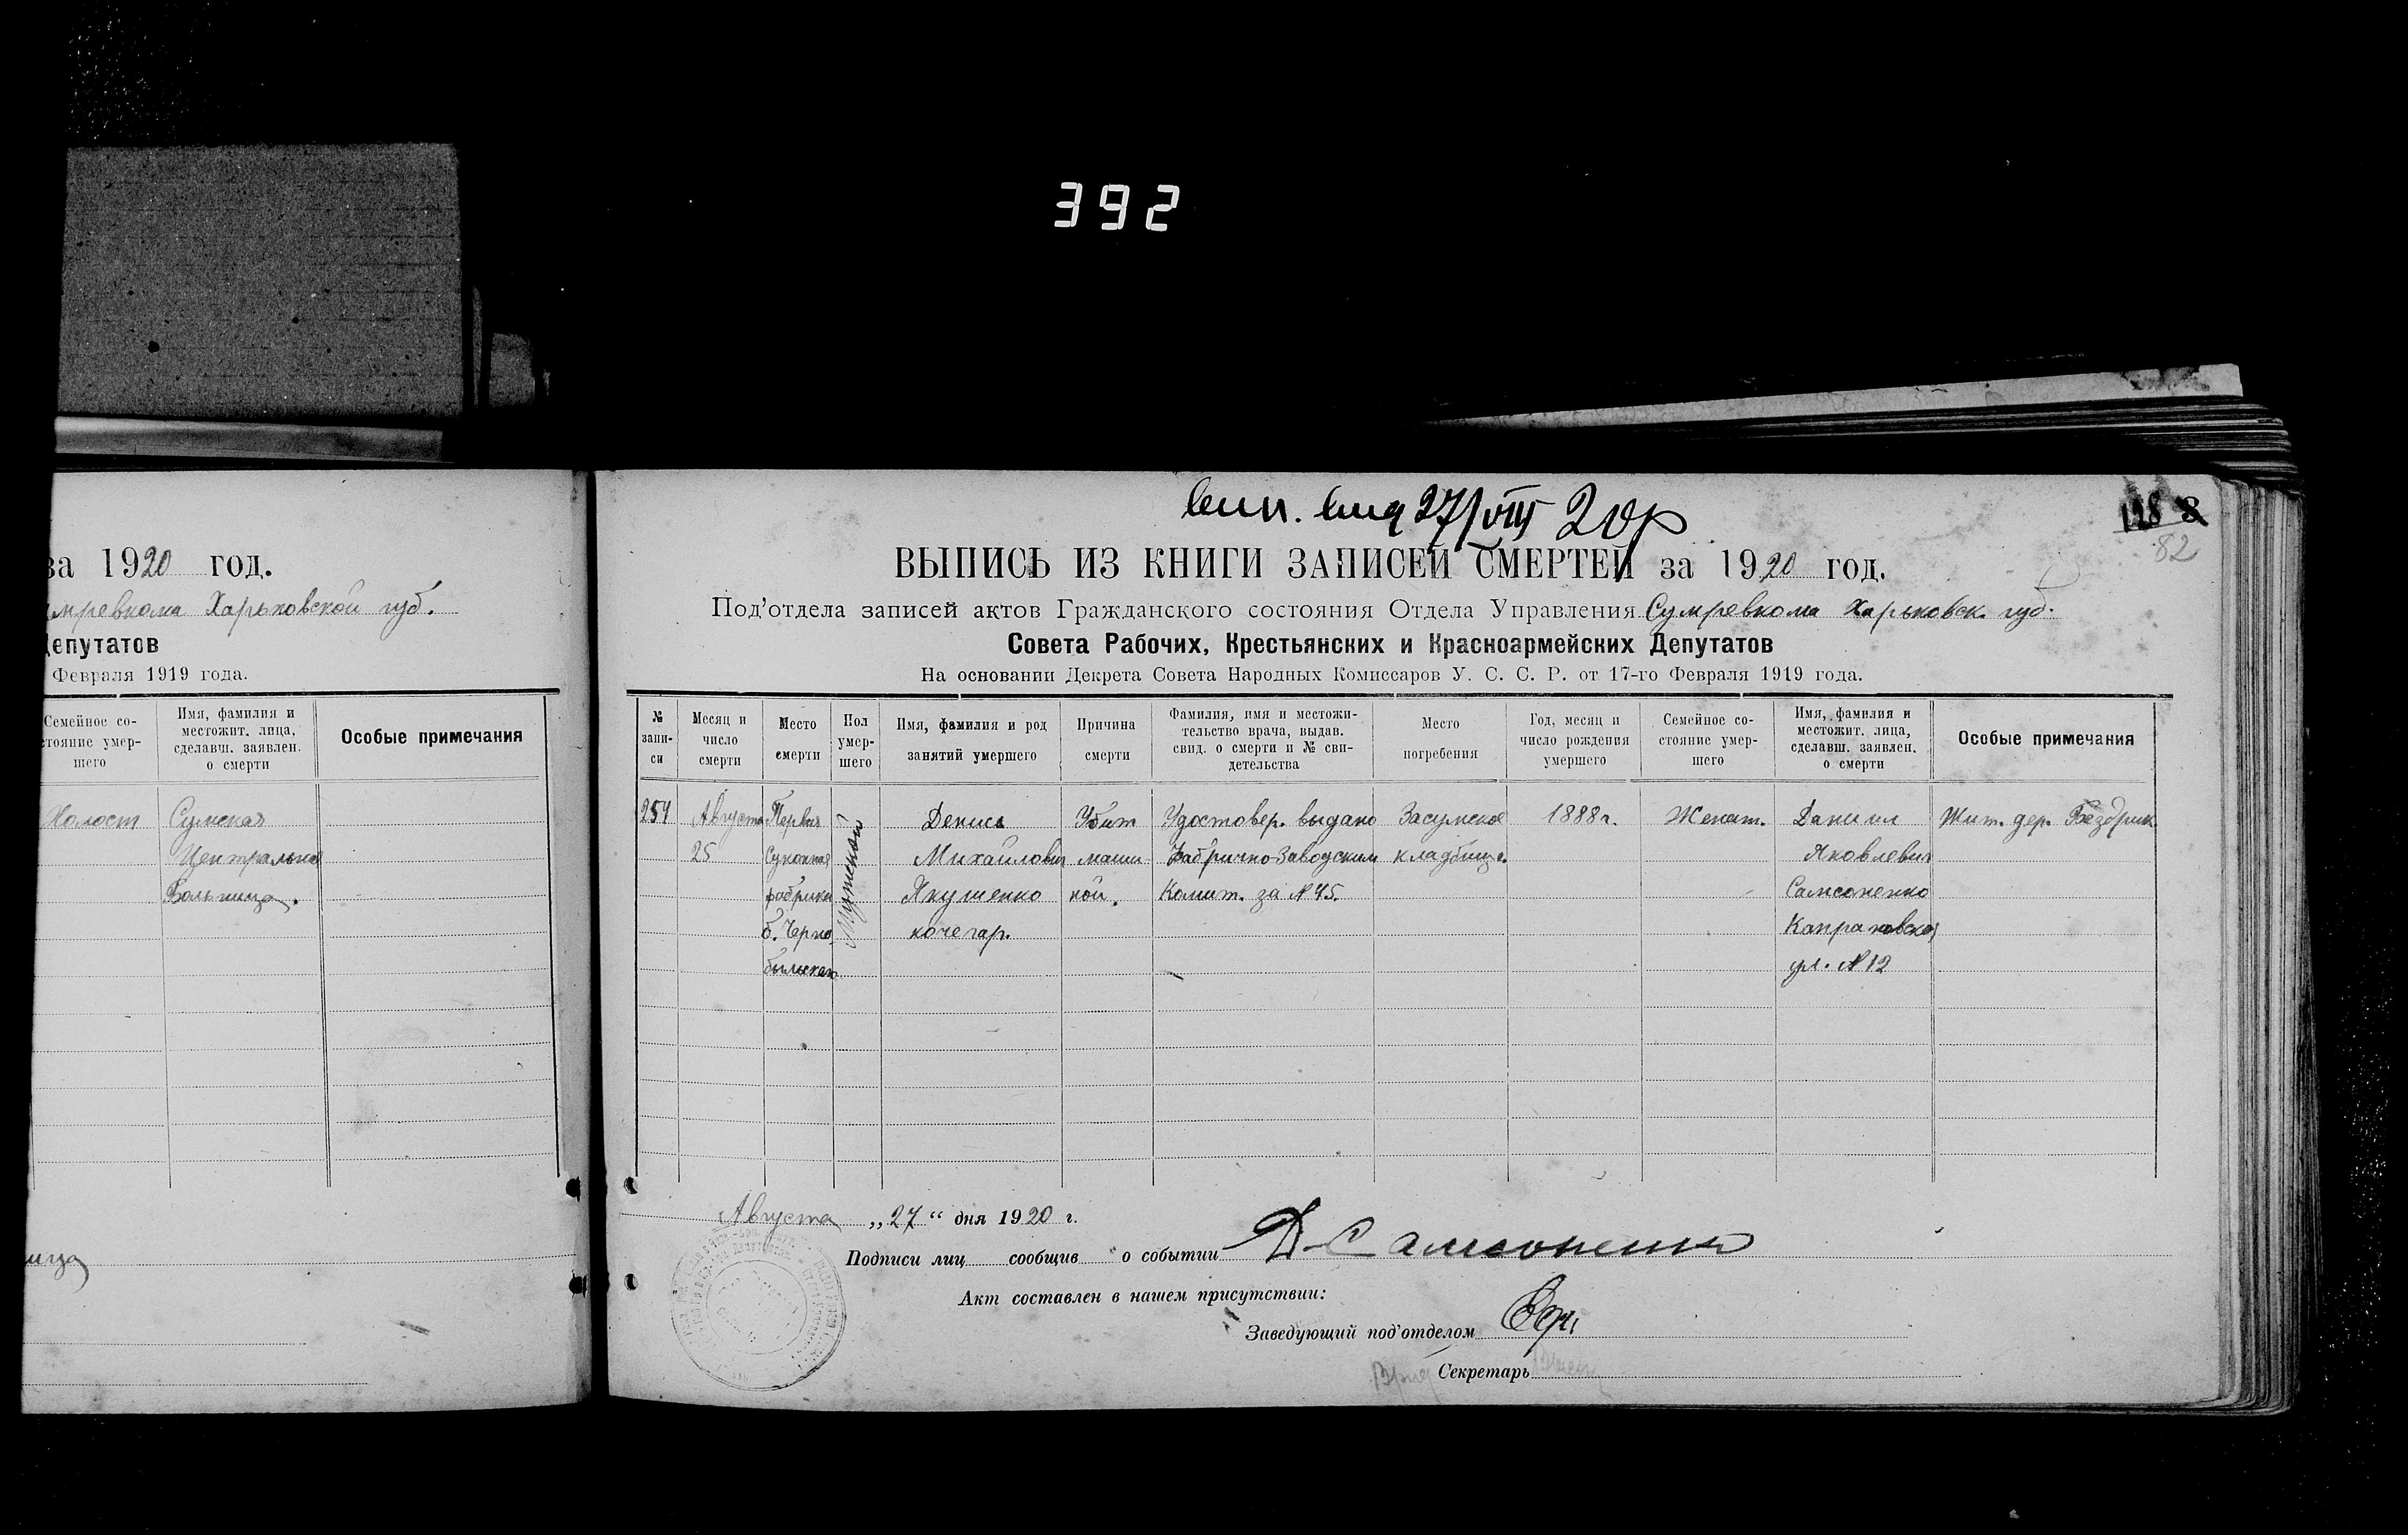 392
за 1920 год.
мревкома Харьковской губ.
Депутатов
Февраля 1919 года.
Семейное со-
стояние умер-
шего
Имя, фамилия и
местожит. лица,
сделавш. заявлен.
о смерти
Особые примечания
Холост
Сумская
Центральная
Больница.
ица
27/VIII 20р
128 8
82
ВЫПИСЬ ИЗ КНИГИ ЗАПИСЕЙ СМЕРТЕЙ за 1920 год.
Под'отдела записей актов Гражданского состояния Отдела Управления Сумревкома Харьковск. губ.
Совета Рабочих, Крестьянских и Красноармейских Депутатов
На основании Декрета Совета Народных Комиссаров У. С. С. Р. от 17-го Февраля 1919 года.
№
запи-
си
Месяц и
число
смерти
Место
смерти
Пол
умер-
шего
Имя, фамилия и род
занятий умершего
Причина
смерти
Фамилия, имя и местожи-
тельство врача, выдав.
свид. о смерти и № сви-
детельства
Место
погребения
Год, месяц и
число рождения
умершего
Семейное со-
стояние умер-
шего
Имя, фамилия и
местожит. лица,
сделавш. заявлен.
о смерти
Особые примечания
254
Августа
25
Первая
Суконная
фабрика
б. Черно-
быльская
Мужской
Денис
Михайлович
Якушенко
кочегар.
Убит
маши
ной.
Удостовер. выдано
Фабрично-Заводским
Комит. за № 45.
Засумское
кладбище.
1888 г.
Женат.
Даниил
Яковлевич
Самсоненко
ул. № 12
Жит. дер. Бездрик
Августа „27“ дня 1920 г.
Подписи лиц сообщив о событии Д. Самсоненко
Акт составлен в нашем присутствии:
Заведующий под'отделом
Секретарь